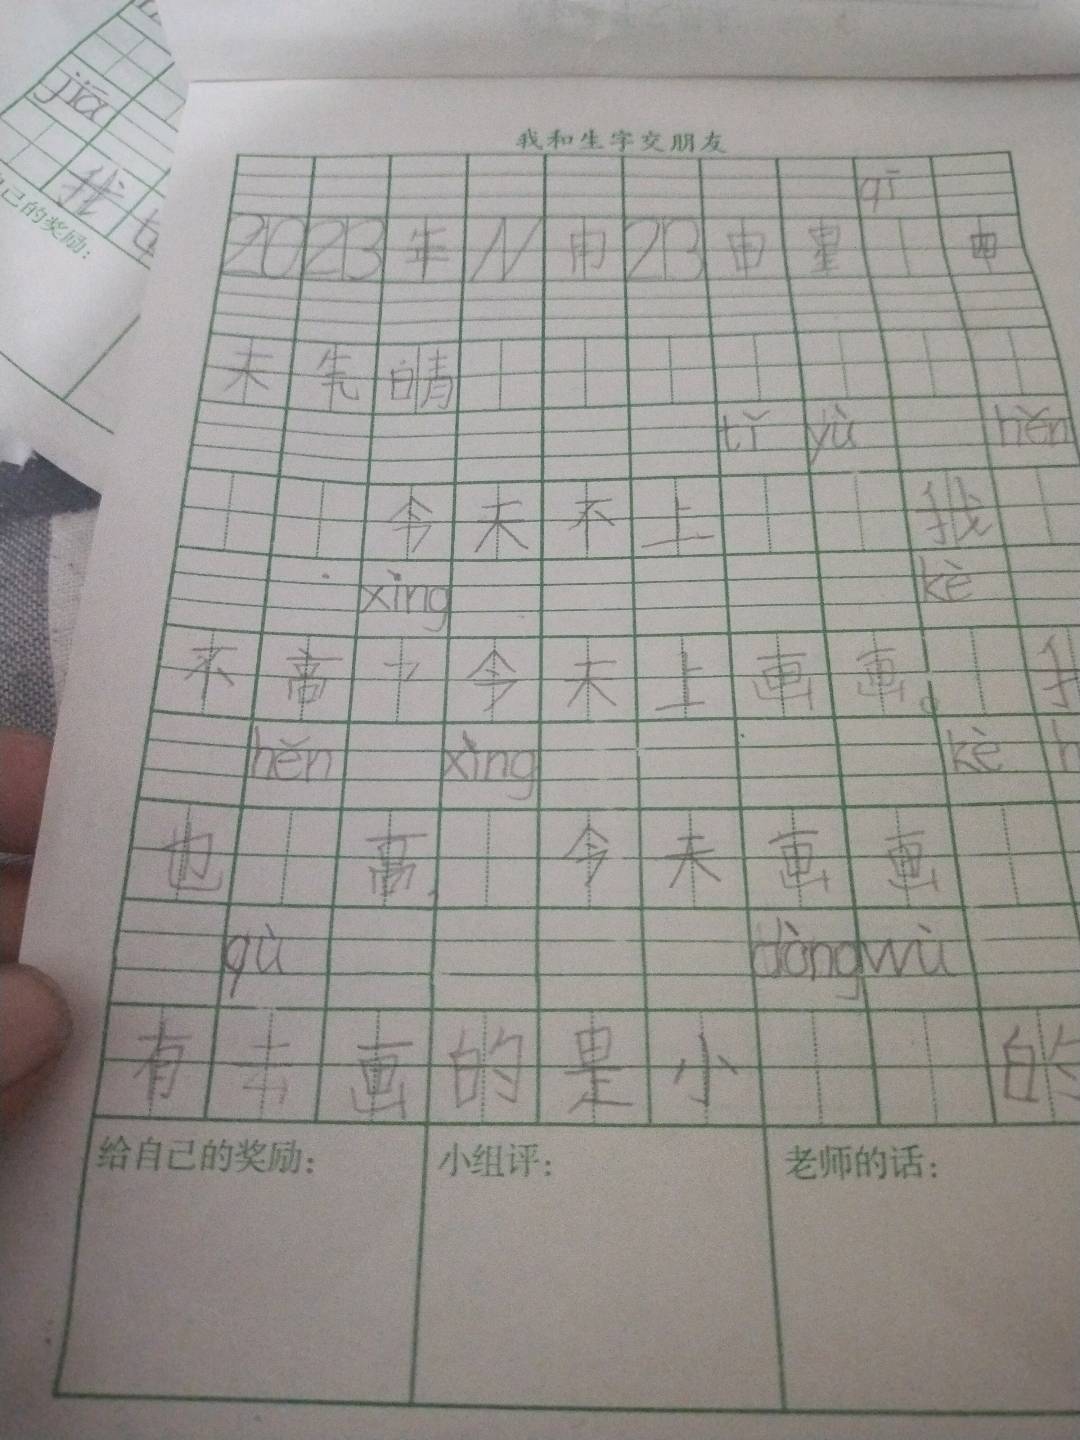 jiā
我
自己的奖励：
我和生字交朋友
qī
2023年 11 月 23 申 星 申
未 先 晴
tǐ yù hěn
今 未 不 上 我
xìng kè
不 高 今 未 上 画 画 。
hěn xìng kè
也 高， 今 未 画 画
qù dòng wù
有 去 画 的 是 小 的
给自己的奖励： 小组评： 老师的话：